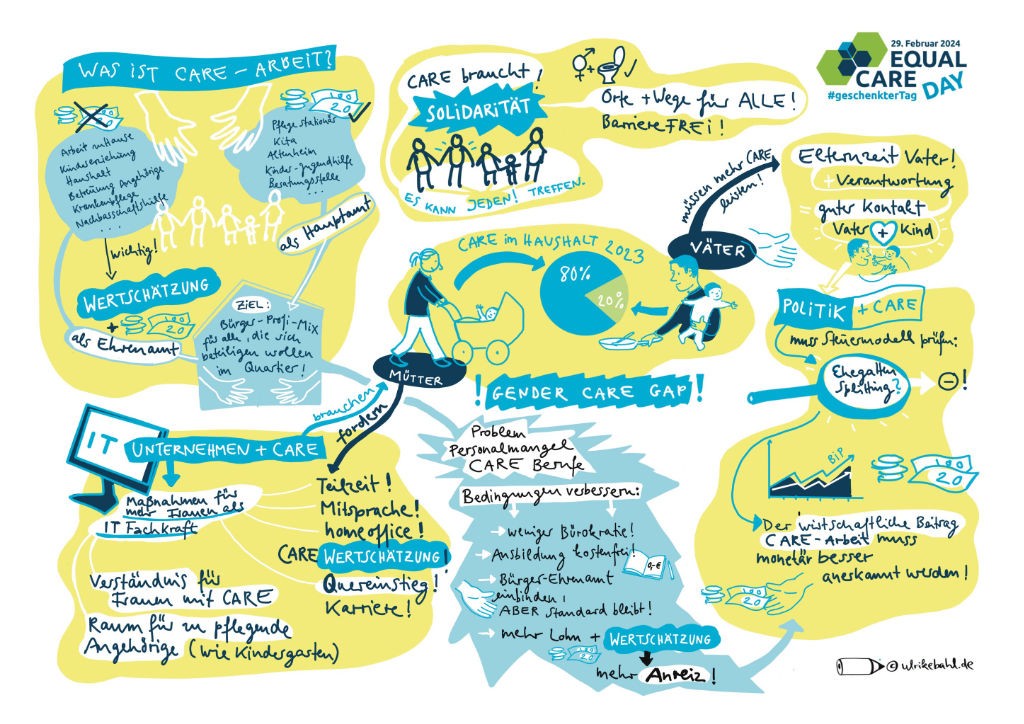 WAS IST CARE-ARBEIT?
100
20
Arbeit zuhause
Kindererziehung
Haushalt
Betreuung Angehörige
Krankenpflege
Nachbarschaftshilfe
...
wichtig!
WERTSCHÄTZUNG
+
als Ehrenamt
100
20
Pflege stationär
Kita
Altenheim
Kinder-Jugendhilfe
Beratungsstelle
...
als Hauptamt
ZIEL:
Bürger-Profi-Mix
für alle, die sich
beteiligen wollen
im Quartier!
CARE braucht!
SOLIDARITÄT
ES KANN JEDEN! TREFFEN.
+
Orte + Wege für ALLE!
BarriereFREI!
29. Februar 2024
EQUAL
CARE
DAY
#geschenkterTag
CARE im HAUSHALT 2023
80%
20%
MÜTTER
VÄTER
müssen mehr CARE
leisten!
Elternzeit Vater!
+ Verantwortung
guter Kontakt
Vater + Kind
! GENDER CARE GAP !
POLITIK + CARE
muss Steuermodell prüfen:
Ehegatten
Splitting?
!
BIP
100
20
Der wirtschaftliche Beitrag
CARE-Arbeit muss
monetär besser
anerkannt werden!
100
20
IT
UNTERNEHMEN + CARE
brauchen
fordern
Maßnahmen für
mehr Frauen als
IT Fachkraft
Verständnis für
Frauen mit CARE
Raum für zu pflegende
Angehörige (wie Kindergarten)
Teilzeit!
Mitsprache!
homeoffice!
CARE WERTSCHÄTZUNG!
Quereinstieg!
Karriere!
Problem
Personalmangel
CARE Berufe
Bedingungen verbessern:
→ weniger Bürokratie!
→ Ausbildung kostenfrei!
0,-€
→ Bürger-Ehrenamt
einbinden,
ABER Standard bleibt!
→ mehr Lohn + WERTSCHÄTZUNG
mehr Anreiz!
© ulrikebahl.de